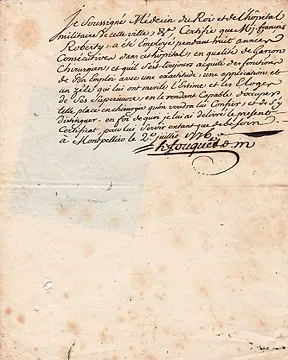 Je Soussigné Médecin du Roi et de l'hôpital
militaire de cette ville, &c. Certifie que Mr. françois
Roberty, a été Employé pendant huit années
Consécutives dans cet hôpital, en qualité de Garçon
Chirurgien, et qu'il s'est toujours acquité des fonctions
de Son Emploi avec une exactitude, une application et
un zéle qui lui ont mérité l'Estime et les Eloges
de Ses Supérieurs, et le rendent Capable d'occuper
telle place en chirurgie qu'on voudra lui Confier, et de S'y
distinguer. en foi de quoi je lui ai délivré le présent
Certificat, pour lui Servir en tant que de besoin
à Montpellier le 2e. juillet 1776.
h fouquet d. m